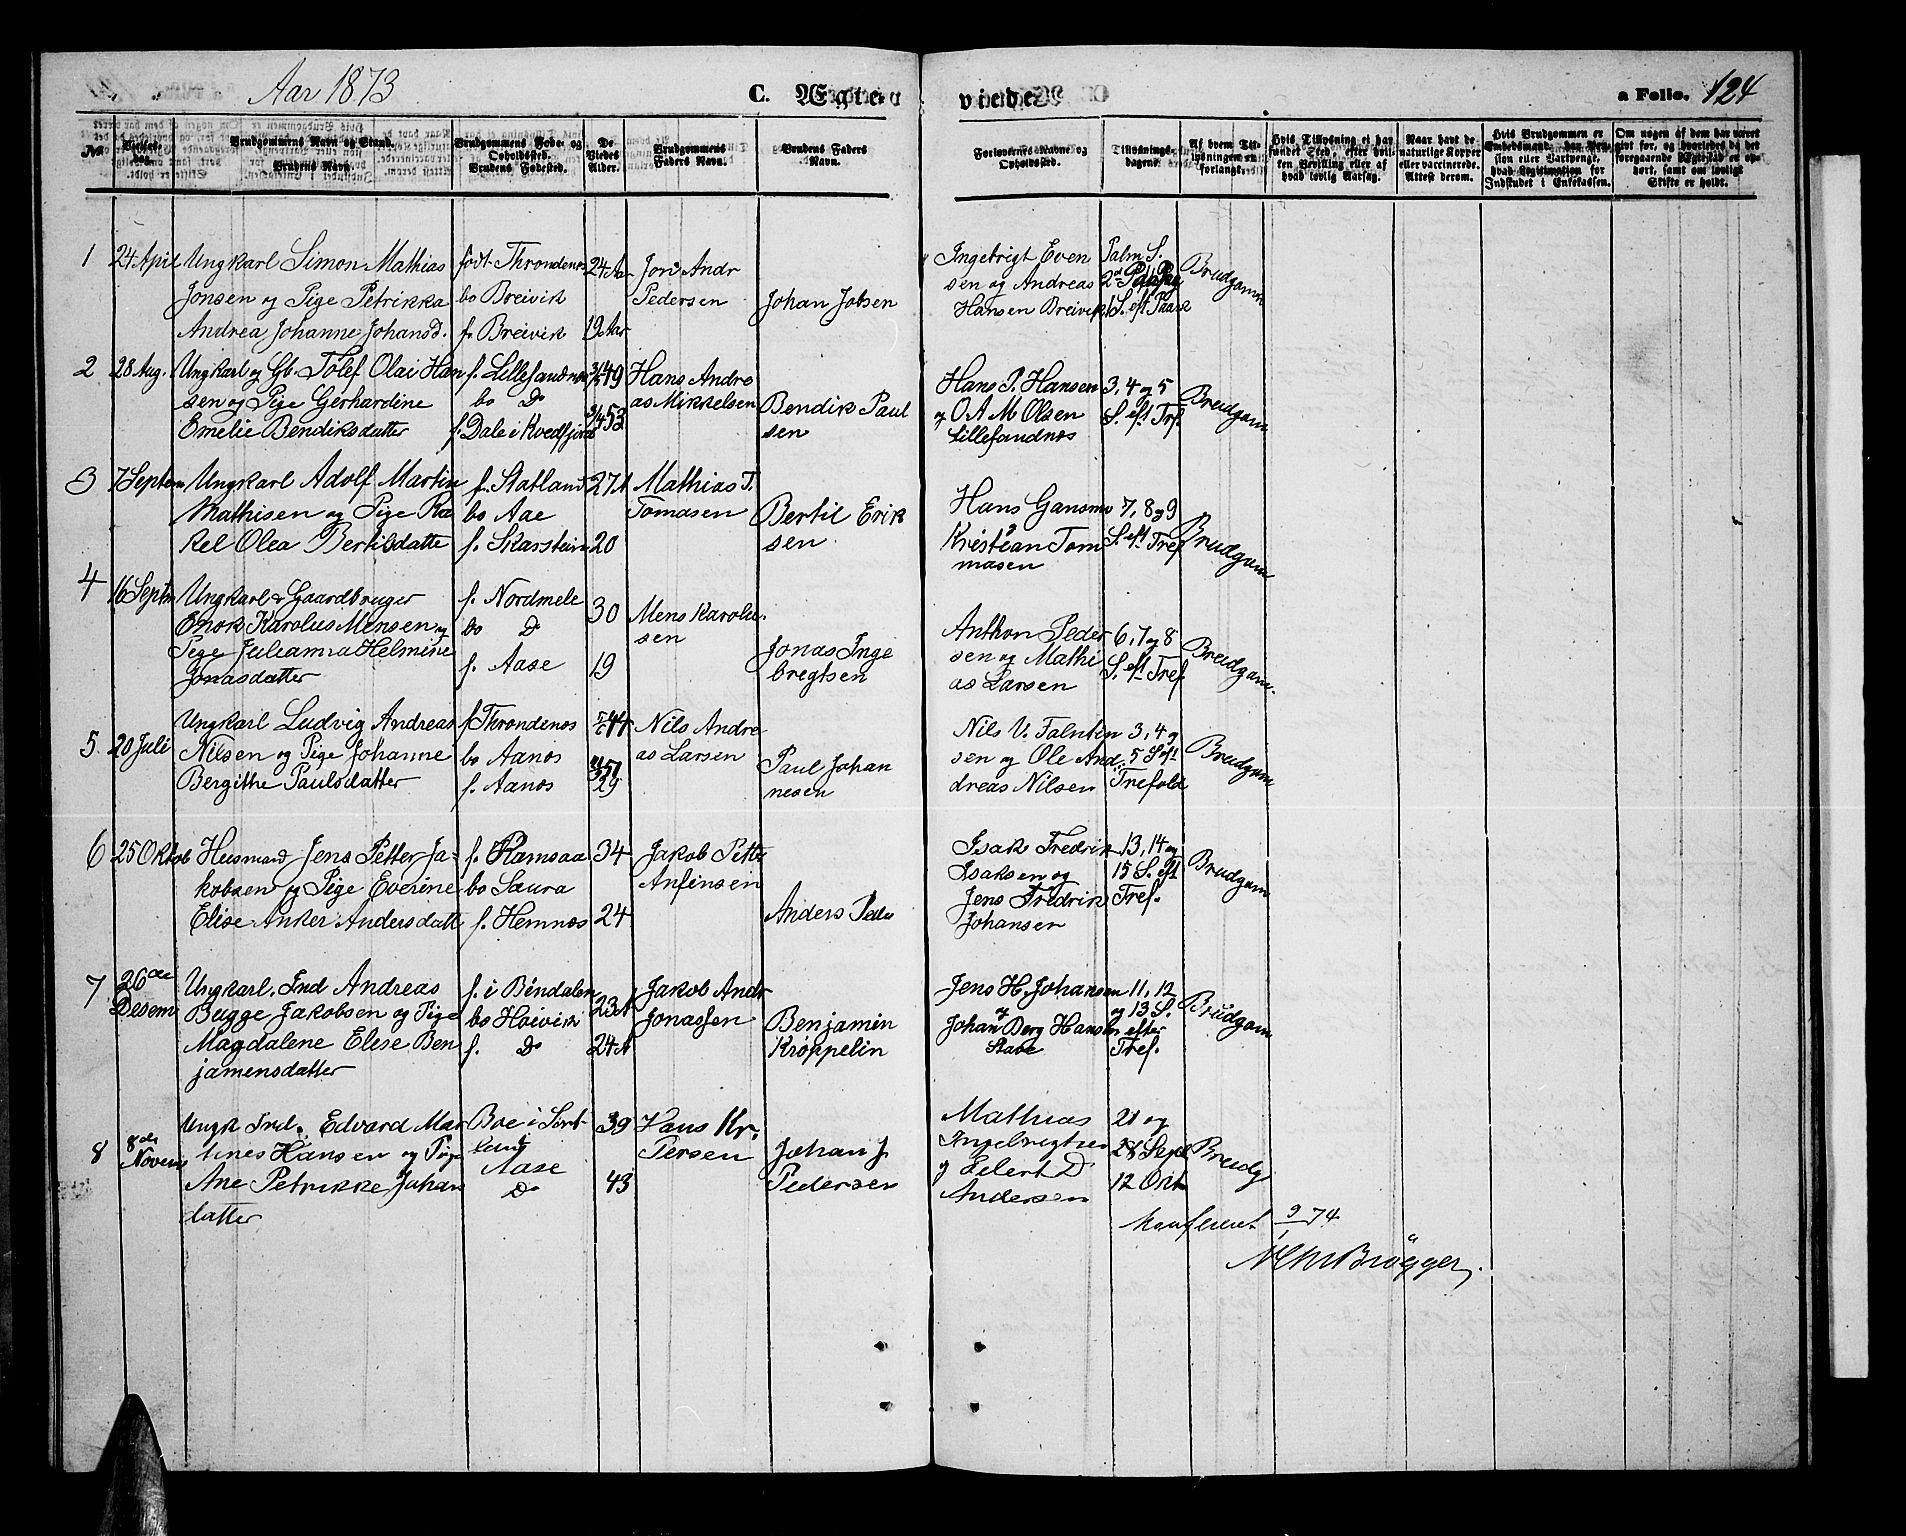 Aar 1873
C. Ægte-
viede.
a Folio. 124
№
Vielses-
dag.
Brudgommens Navn og Stand.
Brudens Navn.
Brudgommens Føde- og
Opholdssted.
Brudens Fødested.
De
Viedes
Alder.
Brudgommens
Faders Navn.
Brudens Faders
Navn.
Forlovernes Navne og
Opholdssted.
Tillysnings-
dagene.
Af hvem Til-
lysningen er
forlangt.
Hvis Tillysning ei har
fundet Sted, efter hvil-
ken Bevilling eller af
hvad lovlig Aarsag.
Naar havt de
naturlige Kopper
eller vaccinerede.
Attest derom.
Hvis Brudgommen er
Embedsmand, har Pen-
sion eller Vartpenge,
hvad Legitimation for
Indskudet i Enkekassen.
Om nogen af dem har været
givt før, og hvorledes da det
foregaaende Ægteskab er op-
hørt, samt om lovligt
Skifte er holdt.
1
24 April
Ungkarl Simon Mathias
Jonsen og Pige Petrikka
Andrea Johanne Johansd.
født Throndenes
bo Breivik
f. Breivik
24 Aar
19 Aar
Jon Andr
Pedersen
Johan Jobsen
Ingebrigt Even
sen og Andreas
Hansen Breivik
Palm S.
2den
1 S. eft Paask
Brudgamm
2
28 Aug.
Ungkarl og Gb. Tolef Olai Han
sen og Pige Gerhardine
Emelie Bendiksdatter
f. Lillesandnes
bo Do
f. Dale i Kvedfjord
49
53
Hans Andre
as Mikkelsen
Bendik Paul
sen
Hans P. Hansen
og O A M Olsen
Lillesandnes
3, 4 og 5
S. eft Tref.
Brudgam
3
7 Septem
Ungkarl Adolf Martin
Mathisen og Pige Ra
kel Olea Bertisdatte
f. Statland
bo Aae
f. Skarstein
27 A
20
Mathias T.
Tomasen
Bertil Erik
sen
Hans Gansmo
Kristian Tom
masen
7, 8 og 9
S. eft Tref
Brudgam
4
16 Septm
Ungkarl & Gaardbruger
Enok Karolus Mensen og
Pige Julianna Helmine
Jonasdatter
f. Nordmele
bo Do
f. Aase
30
19
Mens Karolu
sen
Jonas Inge
bregtsen
Anthon Peder
sen og Mathi
as Larsen
6, 7 og 8
S. eft Tref
Brudgam.
5
20 Juli
Ungkarl Ludvig Andreas
Nilsen og Pige Johanne
Bergithe Paulsdatter
f Throndenes
bo Aanes
f. Aanes
44
51
29
Nils Andre
as Larsen
Paul Johan
nesen
Nils V. Falntin
sen og Ole And
dreas Nilsen
3, 4 og
5 S eft
Trefold
Brudgam
6
25 Oktob
Husmand Jens Petter Ja-
kobsen og Pige Everine
Elise Anker Andersdatt
f. Ramsaa
bo Saura
f. Hemnes
34
24
Jakob Pette
Anfinsen
Anders Peder
Isak Fredrik
Isaksen og
Jens Fredrik
Johansen
13, 14 og
15 S. eft
Tref.
Brudgam
7
26de
Desem
Ungkarl. Ind Andreas
Bugge Jakobsen og Pige
Magdalene Elise Ben
jamensdatter
f. i Bindalen
bo Hoivik
f. Do
23 A
24 A
Jakob Andr
Jonassen
Benjamin
Krøppelin
Jens H. Johansen
og
Johan Berg Hansen
Stave
11, 12
og 13 S.
efter
Tref.
Brudgam
8
8de
Novem
Ungk Ind. Edvard Mar
tines Hansen og Pige
Ane Petrikke Johan
datter
Boe i Sort
land
Aase
Do
39
43
Hans Kr.
Persen
Johan J.
Pedersen
Mathias
Ingebrigtsen
og Eilert D
Andersen
21 og
28 Sept
12 Okt
Brudg
Konfereret 9/1 74
Brögger.